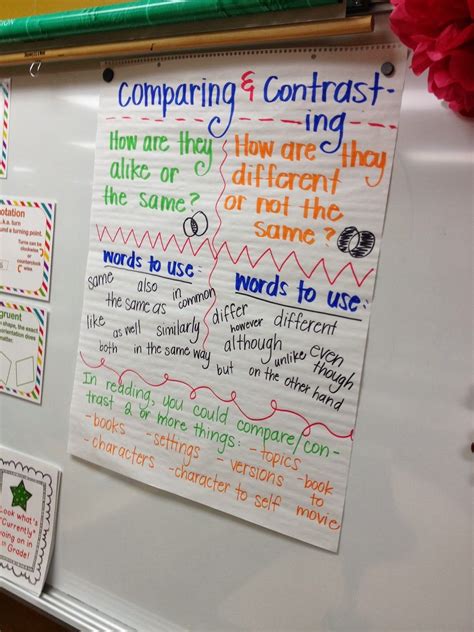 Comparing & Contrast-
ing
How are they
alike or
the same?
How are they
different
or not the
same?
words to use:
same also in
the same as common
like as well similarly
both in the same way
words to use:
differ different
however
although even
unlike though
but on the other hand
In reading, you could compare/con-
trast 2 or more things:
-books -settings -topics -book
-characters -versions to
-character to self movie
notation
a.k.a. turn
around a turning point.
Turns can be
clockwise
or
counterclock
wise
gruent
shape, the exact
Look what's
"Currently"
going on in
Grade!